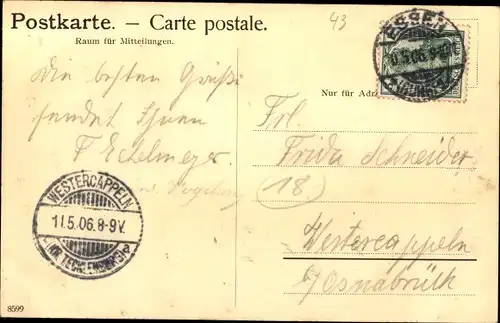 Postkarte. — Carte postale.
Raum für Mitteilungen.
43
ESSEN
Nur für Adr
Die besten Grüße
sendet Ihnen
F Echelmeyer
Frl.
Frida Schneider
(18)
WESTERCAPPELN
11.5.06.8-9V.
a
Westercappeln
b/Osnabrück
8599